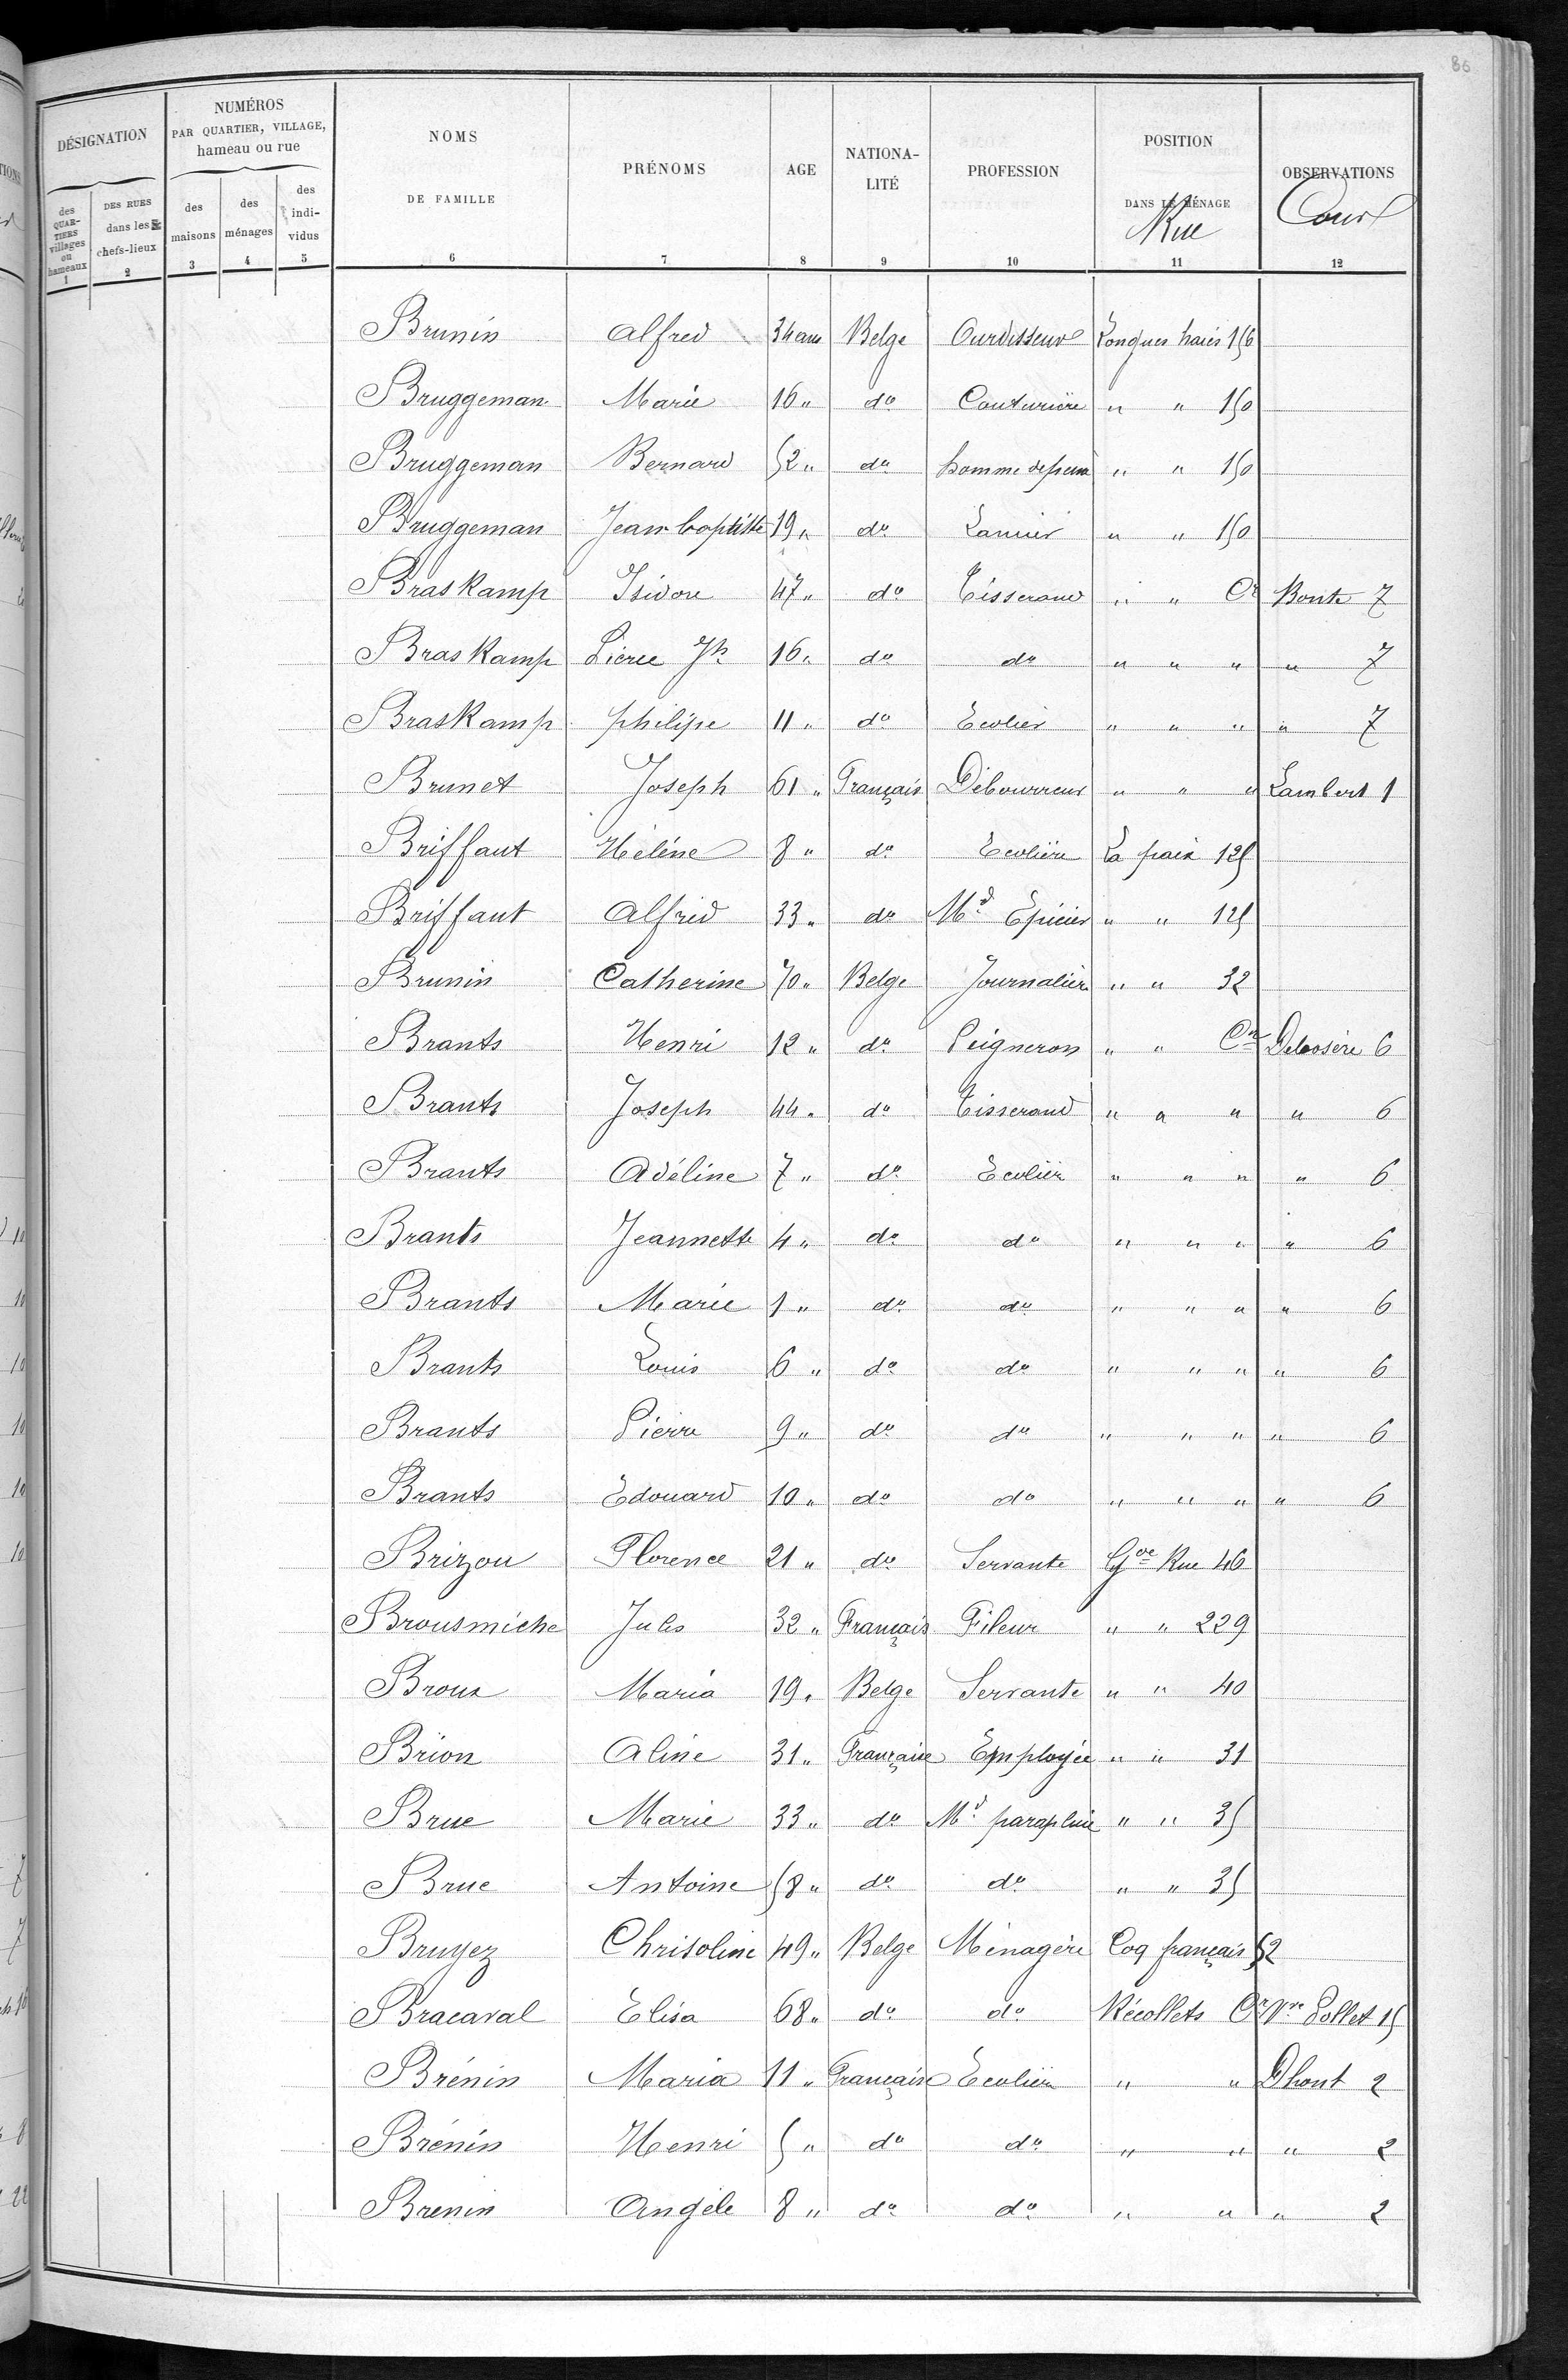 86
DÉSIGNATION
NUMÉROS
PAR QUARTIER, VILLAGE,
hameau ou rue
NOMS
DE FAMILLE
PRÉNOMS
AGE
NATIONA-
LITÉ
PROFESSION
POSITION
DANS LE MÉNAGE
Rue
OBSERVATIONS
Cour
des
QUAR-
TIERS
villages
ou
hameaux
DES RUES
dans les
chefs-lieux
des
maisons
des
ménages
des
indi-
vidus
1 2 3 4 5 6 7 8 9 10 11 12
Brunin Alfred 34 ans Belge Ourdisseur Longues haies 156
Bruggeman Marie 16 " do Couturière " " 150
Bruggeman Bernard 52 " do homme de peine " " 150
Bruggeman Jean baptiste 19 " do Lamier " " 150
Braskamp Isidore 47 " do Tisserand " " Cr Bonte 7
Braskamp Pierre Jh 16 " do do " " " " 7
Braskamp philipe 11 " do Ecolier " " " " 7
Brunet Joseph 61 " Français Débourreur " " " Lambert 1
Briffaut Hélène 8 " do Ecolière La paix 125
Briffaut Alfred 33 " do Md Epicier " " 125
Brunin Catherine 70 " Belge Journalière " " 32
Brants Henri 12 " do Peigneron " " Cr Delosère 6
Brants Joseph 44 " do Tisserand " " " " 6
Brants Adéline 7 " do Ecolière " " " " 6
Brants Jeannette 4 " do do " " " " 6
Brants Marie 1 " do do " " " " 6
Brants Louis 6 " do do " " " " 6
Brants Pierre 9 " do do " " " " 6
Brants Edouard 10 " do do " " " " 6
Brizou Florence 21 " do Servante Gde Rue 46
Brousmiche Jules 32 " Français Fileur " " 229
Broux Maria 19 " Belge Servante " " 40
Brion Aline 31 " Française Employée " " 31
Brue Marie 33 " do Md parapluie " " 35
Brue Antoine 58 " do do " " 35
Bruyez Chrisoline 49 " Belge Ménagère Coq français 52
Bracaval Elisa 68 " do do Récollets Cr Vve Pollet 15
Brénin Maria 11 " Française Ecolière " " Dhont 2
Brénin Henri 5 " do do " " " 2
Brenin Angèle 8 " do do " " " 2